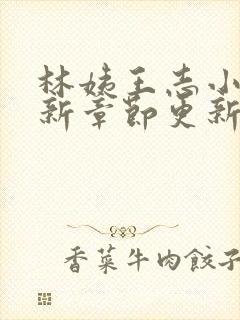 林姨王志小
新章节更新
香菜牛肉餃子